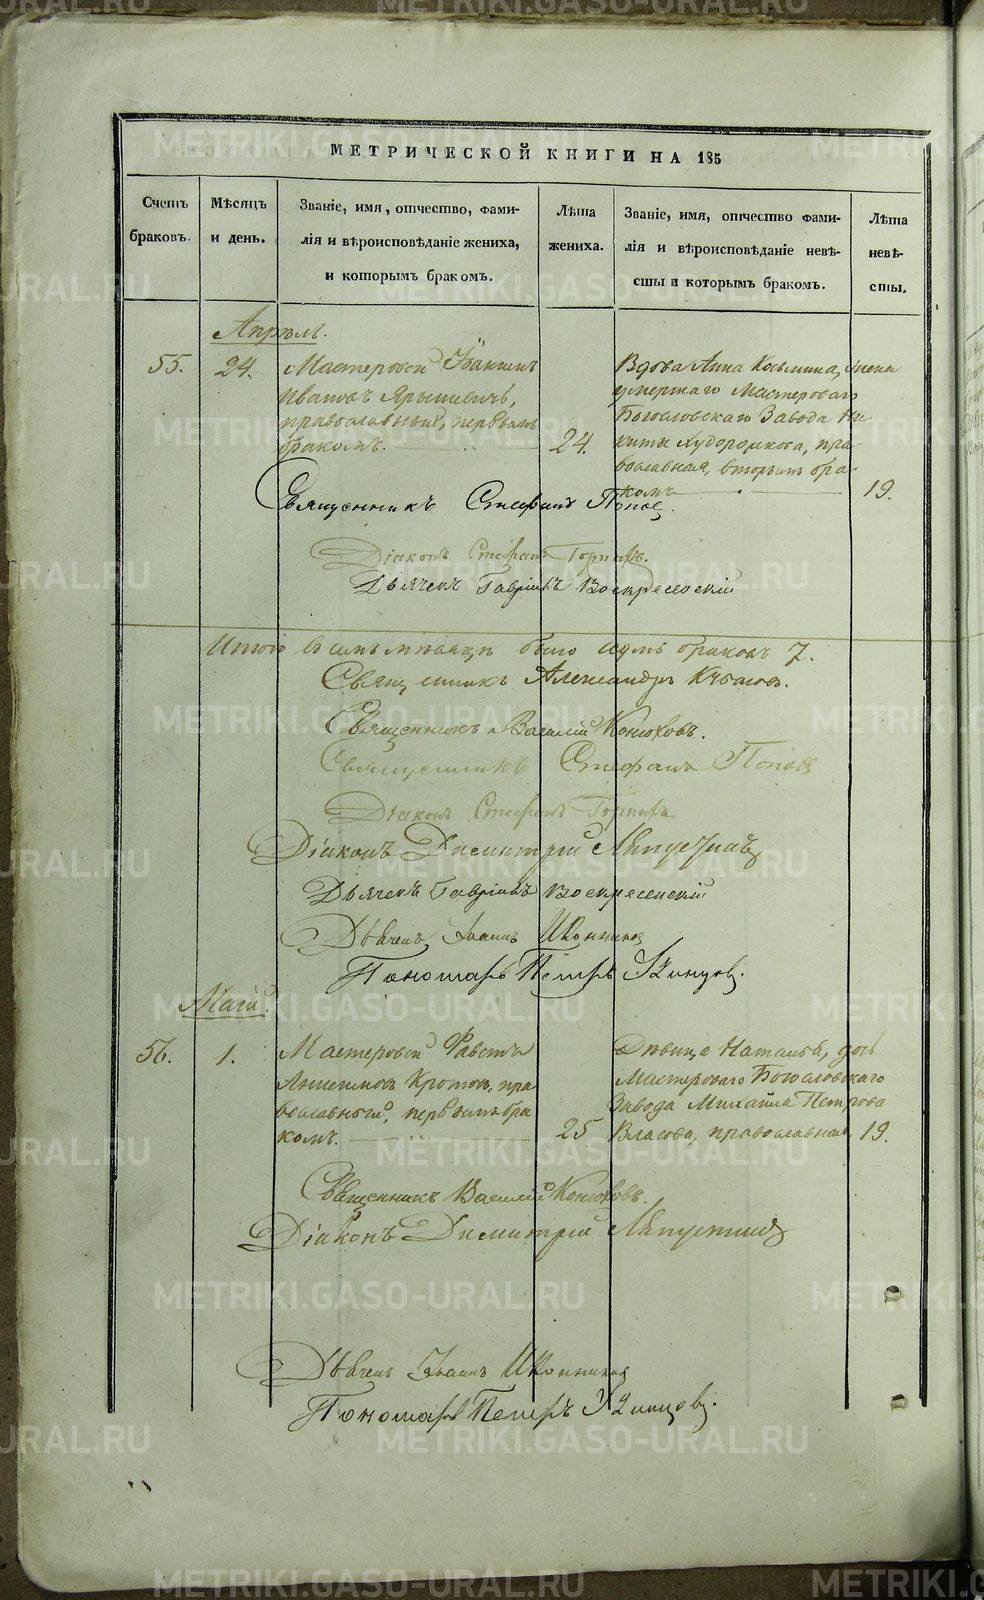 МЕТРИЧЕСКОЙ КНИГИ НА 185
Счетъ браковъ.
Мѣсяцъ и день.
Званіе, имя, отчество, фами-
лія и вѣроисповѣданіе жениха,
и которымъ бракомъ.
Лѣта жениха.
Званіе, имя, отчество фами-
лія и вѣроисповѣданіе невѣ-
сты и которымъ бракомъ.
Лѣта невѣ-
сты.
Апрѣль.
55.
24.
Мастеровой
Ивановъ
православный, первымъ
бракомъ.
24.
Вдова Анна Косьмина, жена
умершаго Мастероваго
Богословскаго Завода Ни-
киты Худорошкова, пра-
вославная, вторымъ бра-
комъ
19.
Священникъ Стефанъ Поповъ.
Діаконъ Стефанъ
Дьячекъ Гавріилъ Воскресенскій
Итого въ семъ мѣсяцѣ было всѣхъ браковъ 7.
Священникъ Александръ
Священникъ Василій Конюховъ.
Священникъ Стефанъ Поповъ
Діаконъ Стефанъ
Діаконъ Димитрій Ляпустинъ
Дьячекъ Гавріилъ Воскресенскій
Дьячекъ Іоаннъ Иконниковъ
Пономарь Петръ Удинцовъ.
Маій.
56.
1.
Мастеровой
Анисимовъ Кротовъ, пра-
вославный, первымъ бра-
комъ.
25
Дѣвица Наталья, дочь
Мастероваго Богословскаго
Завода Михайла Петрова
Власова, православная,
19.
Священникъ Василій Конюховъ.
Діаконъ Димитрій Ляпустинъ
Дьячекъ Іоаннъ Иконниковъ
Пономарь Петръ Удинцовъ.
METRIKI.GASO-URAL.RU